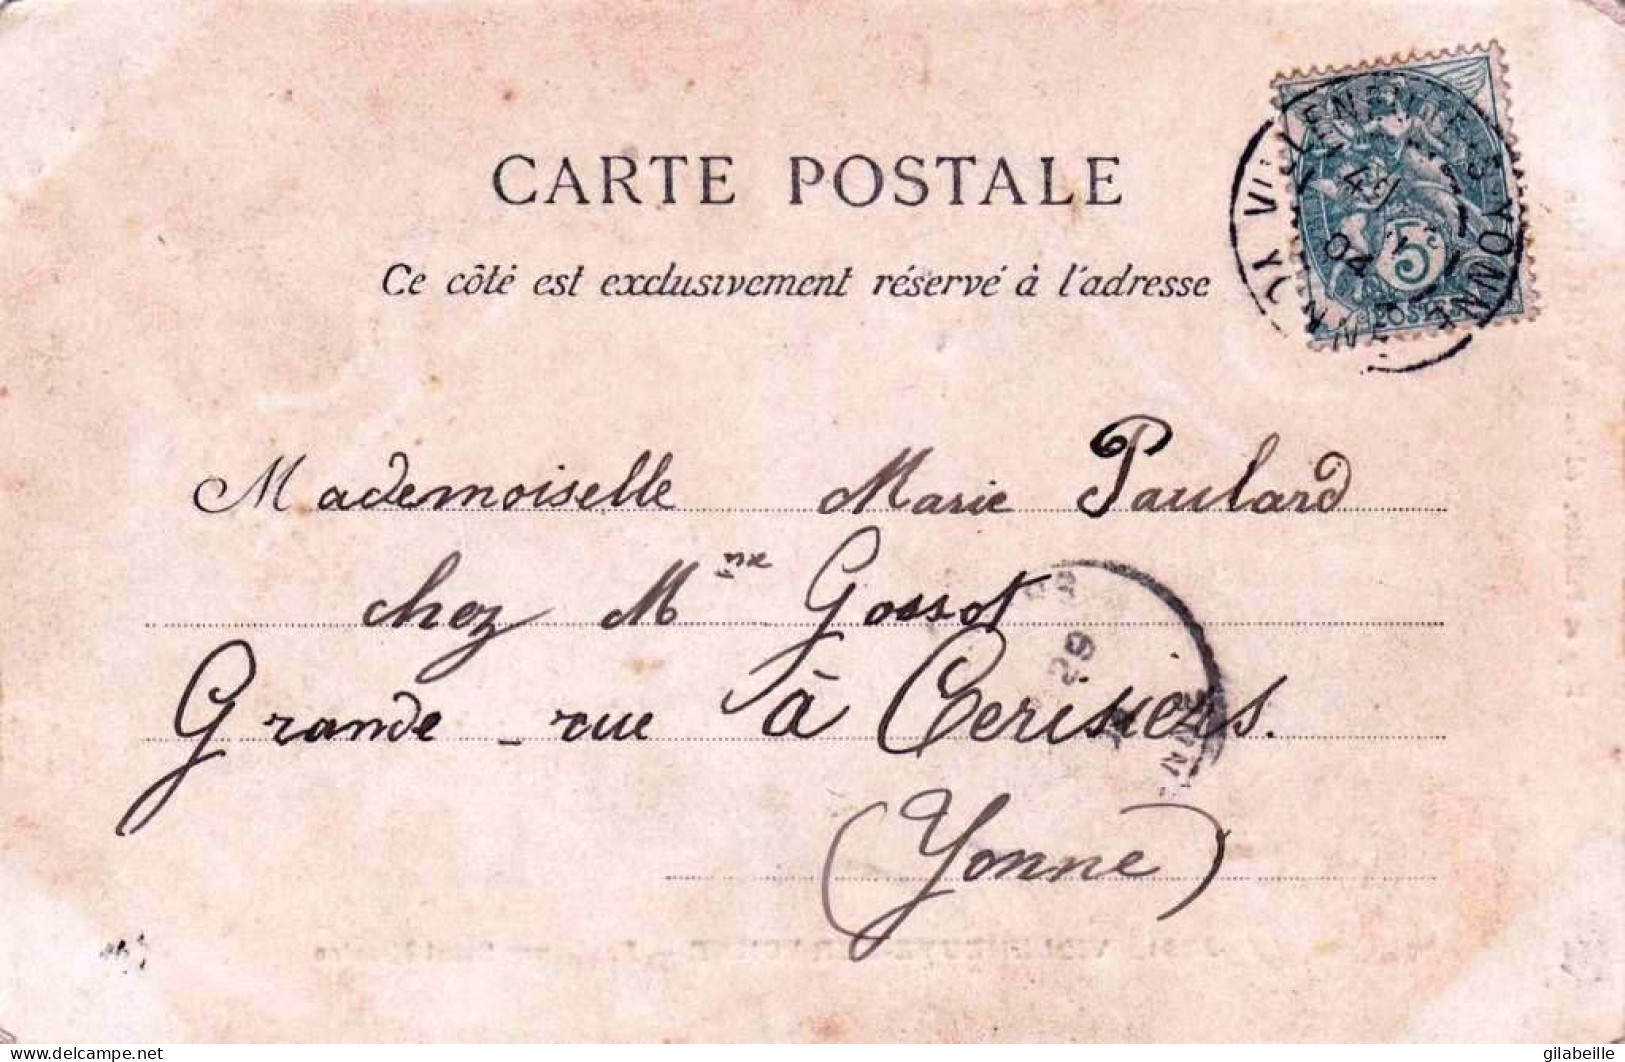 CARTE POSTALE
Ce côté est exclusivement réservé à l'adresse
5c
POSTES
YONNE
04
Mademoiselle Marie Paulard
chez Mme Gossot
Grande - rue à Cerisiers.
(Yonne)
29
delcampe.net
gilabeille